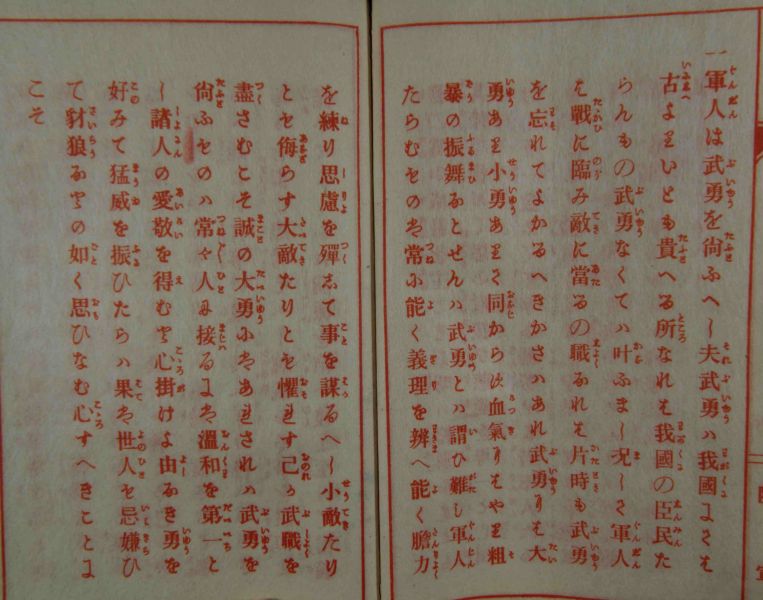 一軍人は武勇を尙ふへし夫武勇ハ我國にては
古よりいとも貴へる所なれは我國の臣民た
らんもの武勇なくてハ叶ふまし况して軍人
は戰に臨み敵に當るの職なれは片時も武勇
を忘れてよかるへきかさハあれ武勇には大
勇あり小勇ありて同からす血氣にはやり粗
暴の振舞なとせんハ武勇とハ謂ひ難し軍人
たらむものは常に能く義理を辨へ能く膽力
を練り思慮を殫して事を謀るへし小敵たり
とも侮らす大敵たりとも懼れす己か武職を
盡さむこそ誠の大勇にはあれされハ武勇を
尙ふものハ常々人に接るには溫和を第一と
し諸人の愛敬を得むと心掛けよ由なき勇を
好みて猛威を振ひたらハ果は世人も忌嫌ひ
て豺狼なとの如く思ひなむ心すへきことに
こそ